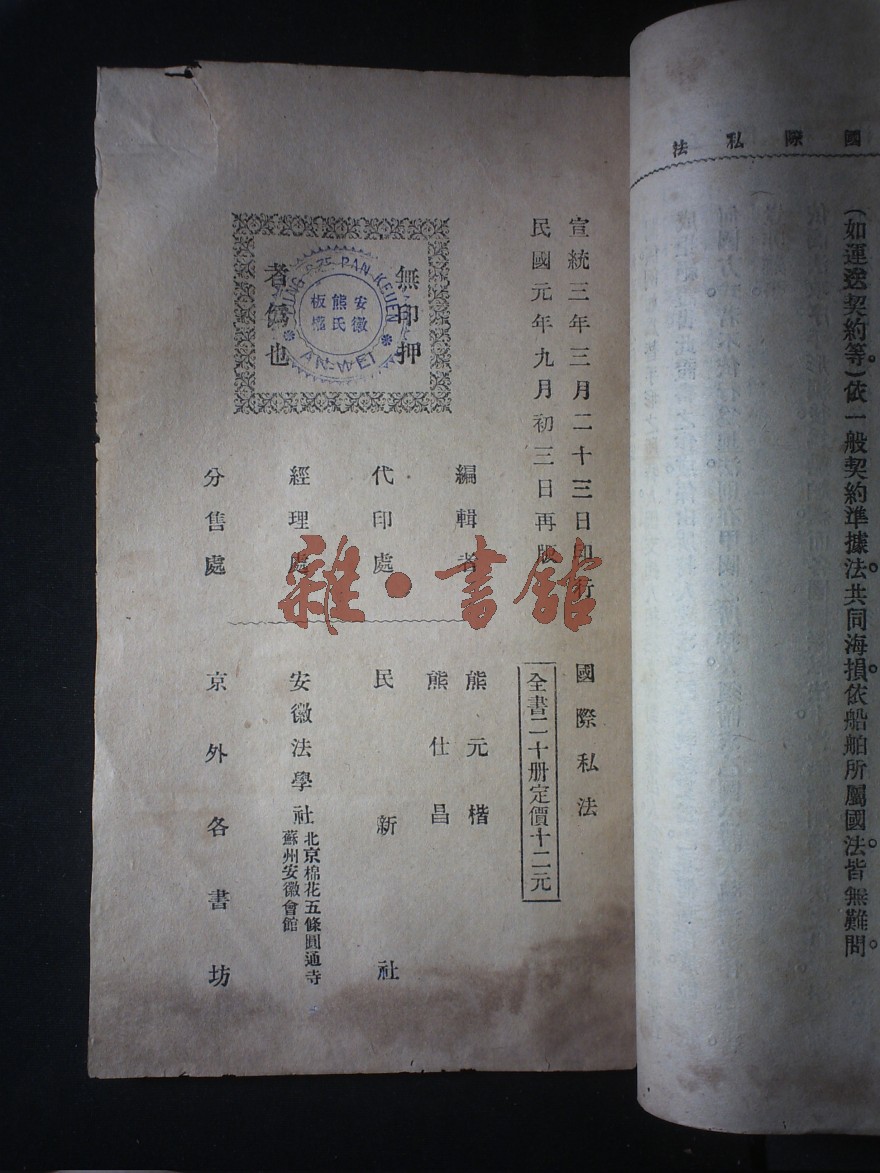 國際私法
（如運送契約等）依一般契約準據法共同海損依船舶所屬國法皆無難問
宣統三年三月二十三日印行
民國元年九月初三日再版
國際私法
全書二十册定價十二元
無印押
者僞也
安徽
熊氏
板權
PAN-KEUEN
AN-WEI
編輯者
熊元楷
熊仕昌
代印處
民新社
經理處
安徽法學社
北京棉花五條圓通寺
蘇州安徽會館
分售處
京外各書坊
雜·書館